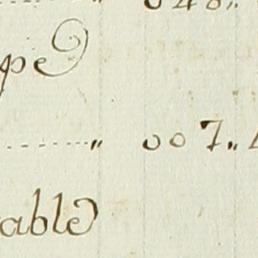 pe
........" 007."
able